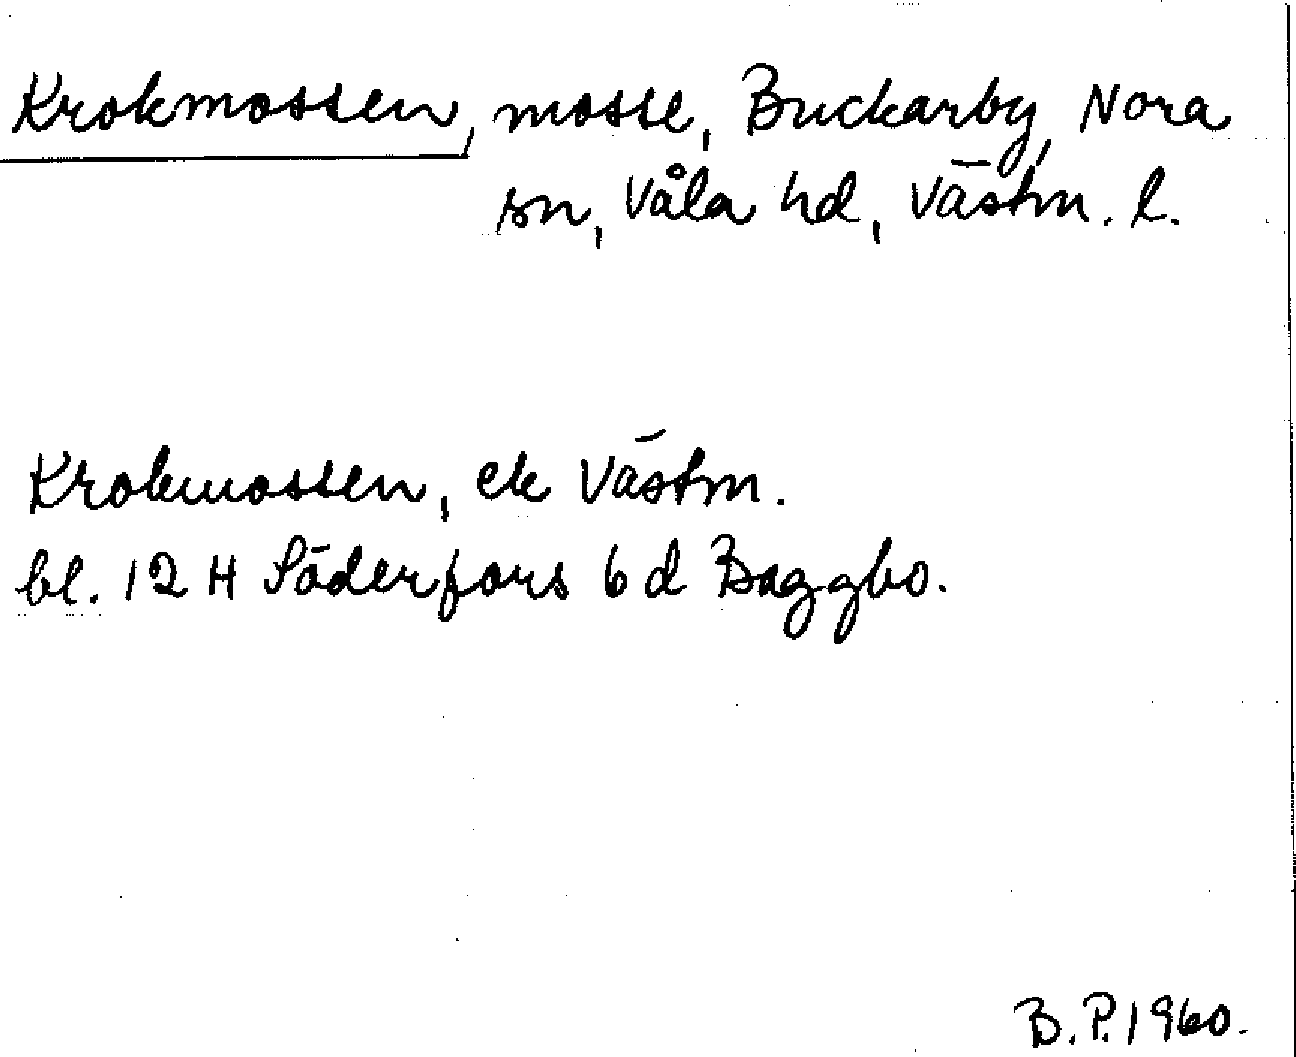 Krokmossen, mosse, Buckarby, Nora
sn, Våla hd, Västm. l.
Krokmossen, ek Västm.
bl. 12 H Söderfors 6 d Baggbo.
B.P. 1960.